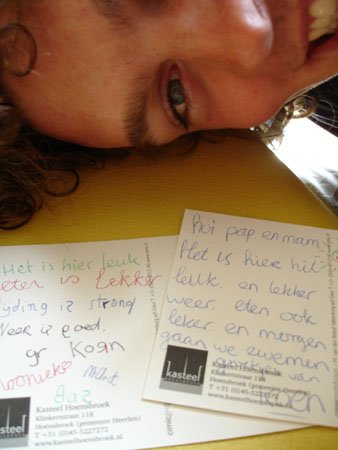 hoi pap en mam
Het is hier
leuk. en lekker
weer. eten ook
leker. en morgen
gaan we zwemen
van
kasteel
Kasteel Hoensbroek
Klinkertstraat 118
Hoensbroek (gemeente Heerlen)
T +31 (0)45-5227272
www.kasteelhoensbroek.nl
Het is hier leuk
eten is lekker
is streng
Weer is goed.
gr Koen
Bas
kasteel
Kasteel Hoensbroek
Klinkertstraat 118
Hoensbroek (gemeente Heerlen)
T +31 (0)45-5227272
www.kasteelhoensbroek.nl